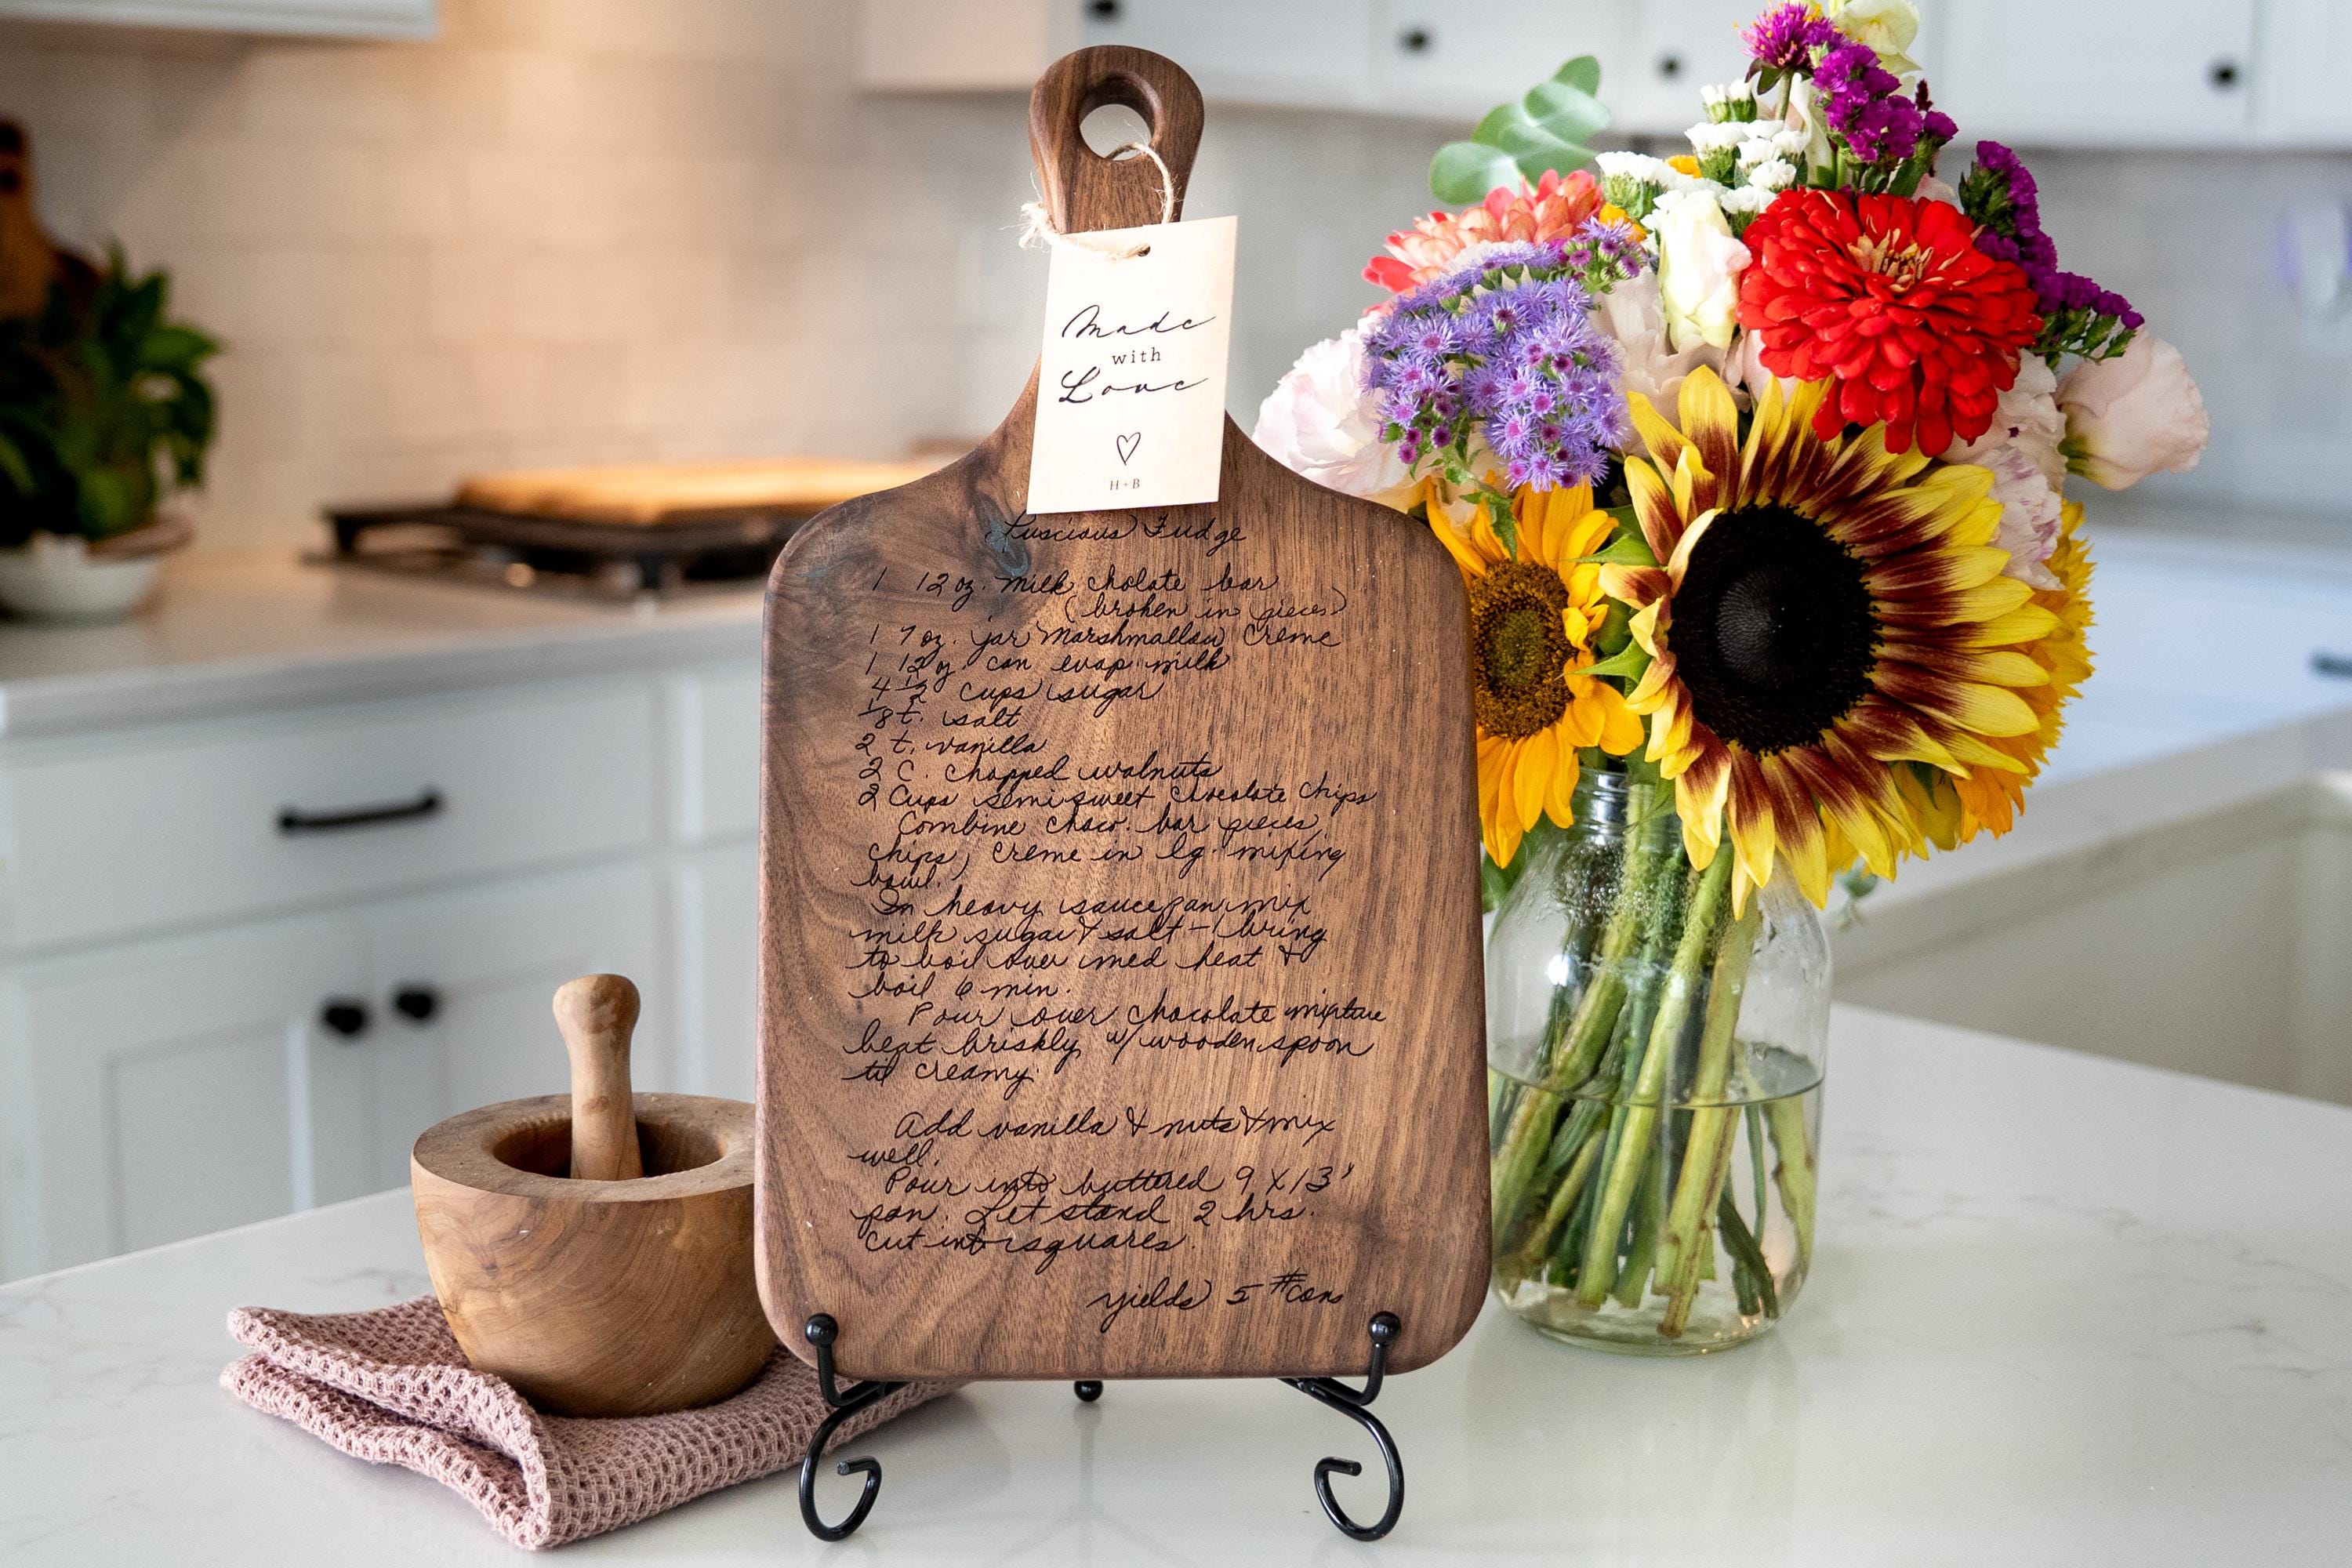 Made
with
Love
H+B
Luscious Fudge
1 12 oz. milk cholate bar
(broken in pieces)
1 7 oz. jar Marshmallow Creme
1 12 oz. can evap. milk
4 1/2 cups sugar
1/8 t. salt
2 t. vanilla
2 C. chopped walnuts
2 Cups semi sweet chocolate chips
Combine choco. bar pieces,
chips, creme in lg. mixing
bowl.
In heavy saucepan mix
milk sugar & salt - bring
to boil over med heat &
boil 6 min.
Pour over chocolate mixture
beat briskly w/ wooden spoon
til creamy.
Add vanilla & nuts & mix
well.
Pour into buttered 9 X 13"
pan. Let stand 2 hrs.
cut into squares.
yields 5 #